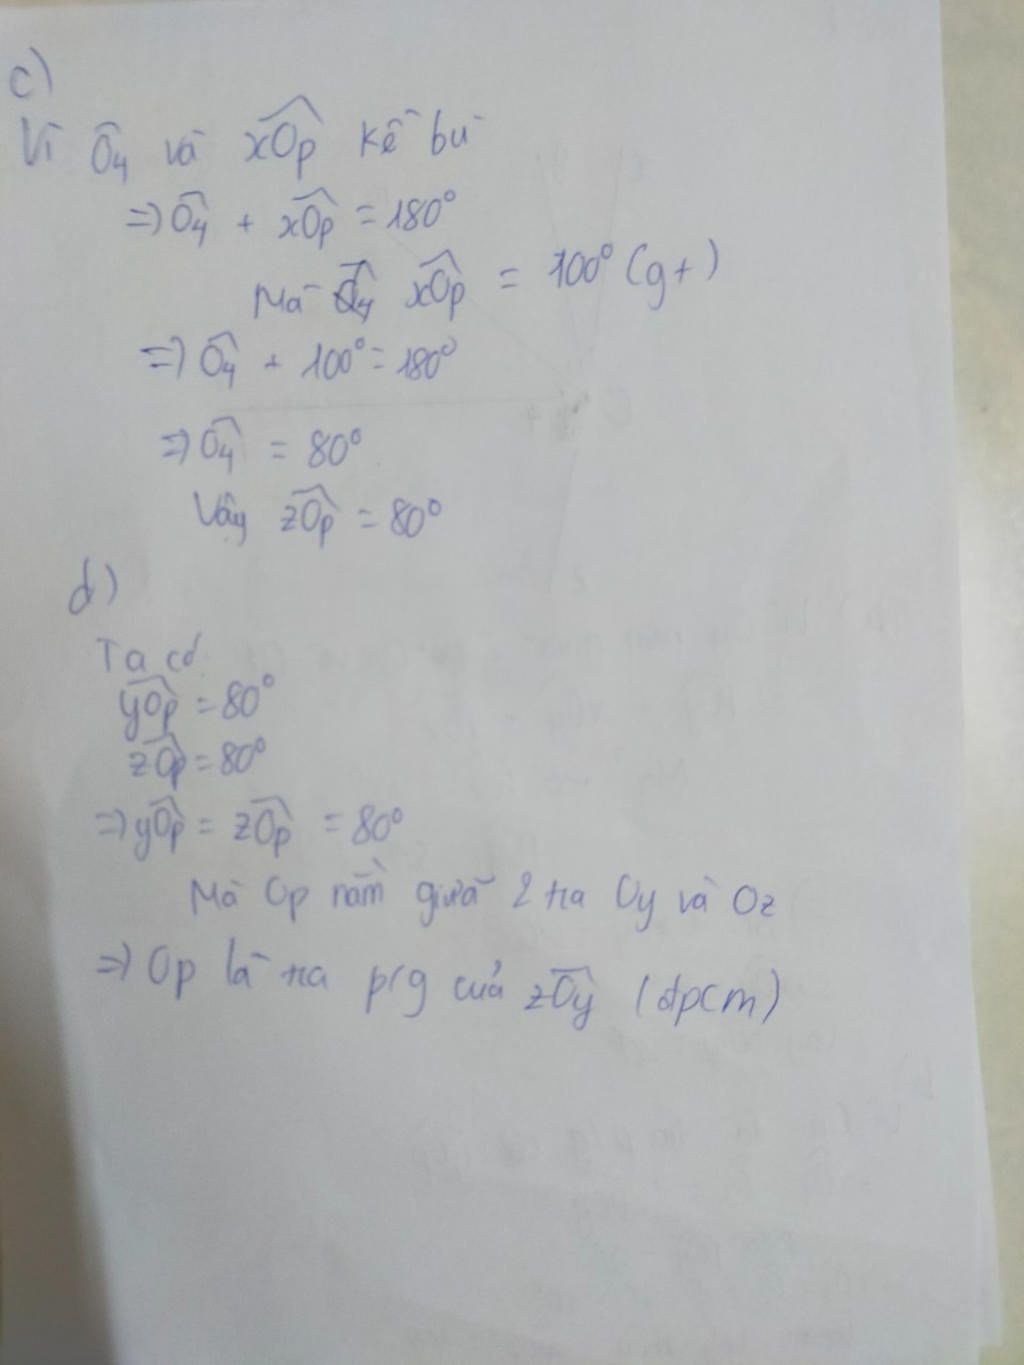 c)
Vì Ô₄ và xOp kề bù
=> Ô₄ + xOp = 180°
Mà xOp = 100° (gt)
=> Ô₄ + 100° = 180°
=> Ô₄ = 80°
Vậy zOp = 80°
d)
Ta có
yOp = 80°
zOp = 80°
=> yOp = zOp = 80°
Mà Op nằm giữa 2 tia Oy và Oz
=> Op là tia p/g của zOy (đpcm)